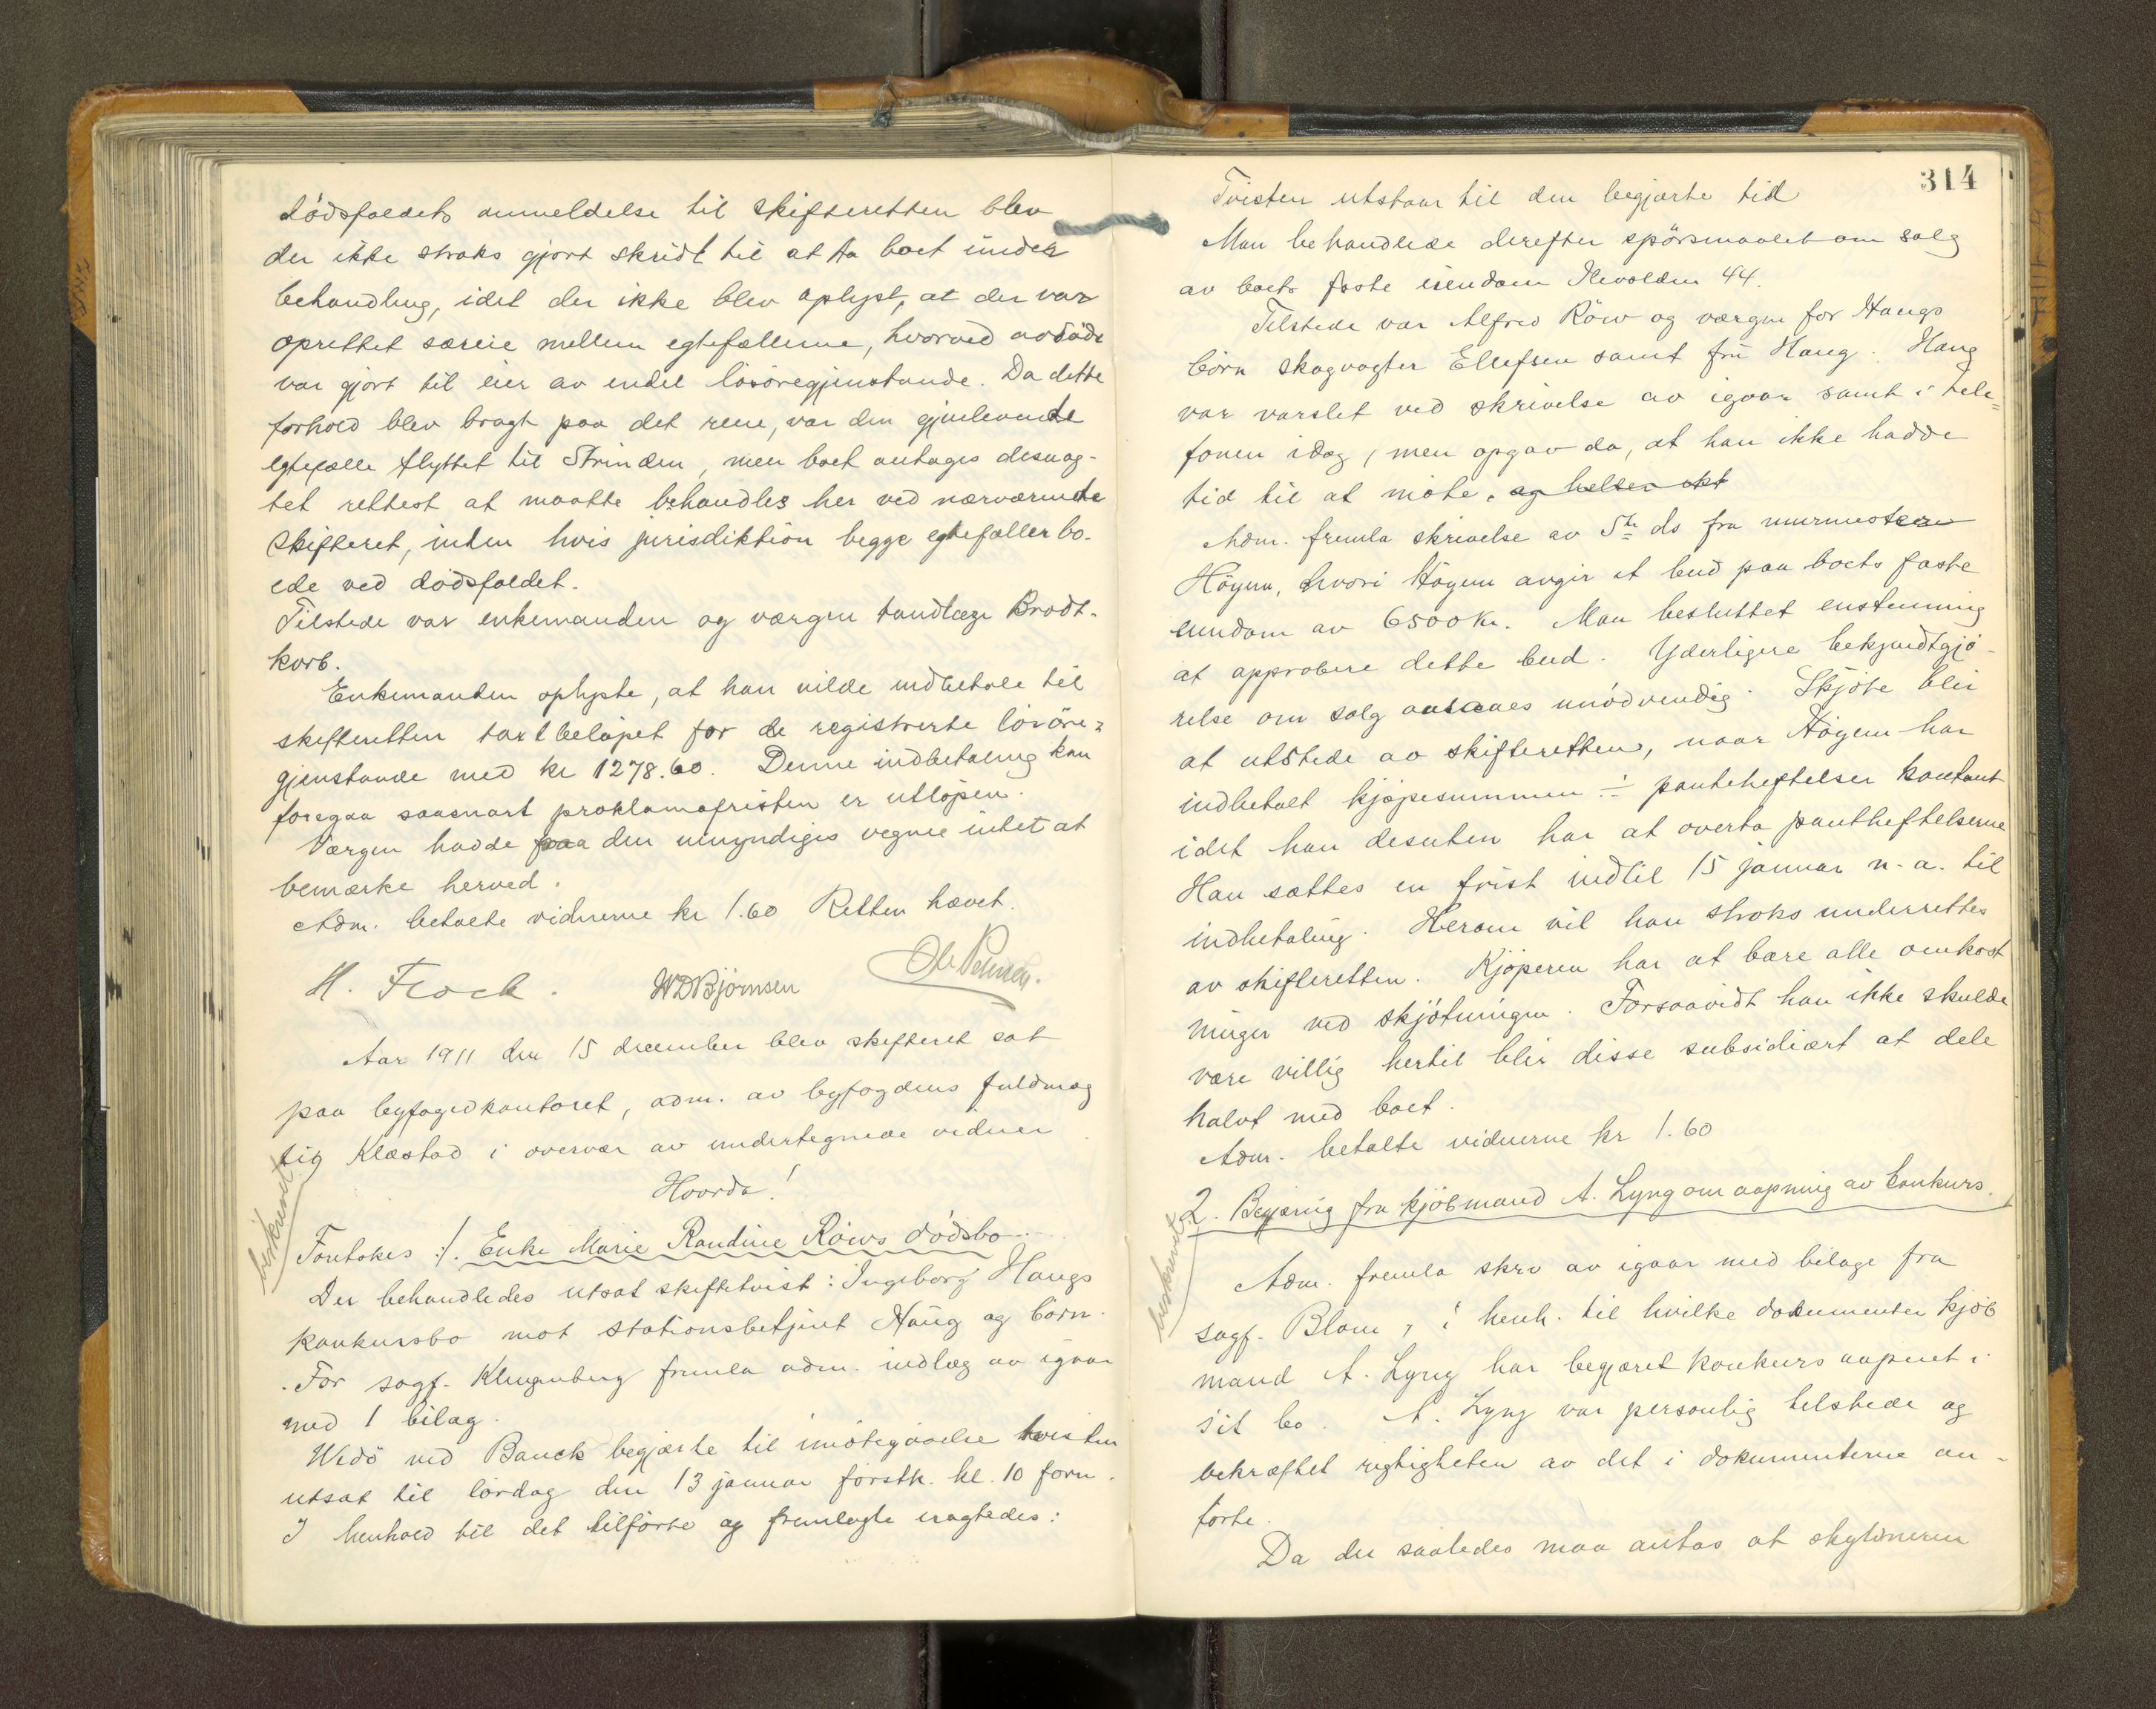 dödsfaldets anmeldelse til skifteretten blev
der ikke straks gjort skridt til at ta boet under
behandling, idet der ikke blev oplyst, at der var
oprettet særeie mellem egtefællerne, hvorved avdöde
var gjort til eier av endel lösöregjenstande. Da dette
forhold blev bragt paa det rene, var den gjenlevende
egtefælle flyttet til Strinden, men boet antages desuag-
tet rettest at maatte behandles her ved nærværende
skifteret, inden hvis jurisdiktion begge egtefæller bo-
ede ved dödsfaldet.
Tilstede var enkemanden og værgen tandlæge Brodt-
korb.
Enkemanden oplyste, at han vilde indbetale til
skifteretten takstbelöpet for de registrerte lösöre=
gjenstande med kr 1278.60. Denne indbetaling kan
foregaa saasnart proklamafristen er utlöpen.
Værgen hadde paa den umyndiges vegne intet at
bemærke herved.
Adm. betalte vidnerne kr 1.60 Retten hævet.
H. Frock. WDBjörnsen
Aar 1911 den 15 december blev skifteret sat
paa byfogedkontoret, adm. av byfogdens fuldmæg
tig Klæstad i overvær av undertegnede vidner
Hvorda!
beskrevet
Foretokes 1. Enke Marie Randine Röws dödsbo
Der behandledes utsat skiftetvist: Ingeborg Haugs
konkursbo mot stationsbetjent Haug og börn.
For sagf. Klingenberg fremla adm. indlæg av igaar
med 1 bilag.
Wedö ved Bauck begjærte til imötegaaelse tvisten
utsat til lördag den 13 januar förstk. kl. 10 form.
I henhold til det tilförte og fremlagte eragtedes:
314
Tvisten utstaar til den begjærte tid
Man behandlede derefter spörsmaalet om salg
av boets faste eiendom Ilevolden 44.
Tilstede var Alfred Röw og værgen for Haugs
börn skogvogter Ellefsen samt fru Haug. Haug
var varslet ved skrivelse av igaar samt i tele=
fonen idag, men opgav da, at han ikke hadde
tid til at möte. og heller ikke
Adm. fremla skrivelse av 5te ds fra murmester
Höyem, hvori Höyem avgir et bud paa boets faste
eiendom av 6500 kr. Man besluttet enstemmig
at approbere dette bud. Yderligere bekjendtgjö-
relse om salg ansaaes unödvendig. Skjöte blir
at utstede av skifteretten, naar Höyem har
indbetalt kjöpesummen ÷ panteheftelser kontant
idet han desuten har at overta pantheftelserne
Han sættes en frist indtil 15 januar n. a. til
indbetaling. Herom vil han straks underrettes
av skifteretten. Kjöperen har at bære alle omkost
ninger ved skjötningen. Forsaavidt han ikke skulde
være villig hertil blir disse subsidiært at dele
halvt med boet.
Adm. betalte vidnerne kr 1.60
beskrevet
2. Begjæring fra kjöbmand A. Lyng om aapning av konkurs.
Adm. fremla skrv av igaar med bilage fra
sagf. Blom, i henh. til hvilke dokumenter kjöb
mand A. Lyng har begjæret konkurs aapnet i
sit bo. A. Lyng var personlig tilstede og
bekræftet rigtigheten av det i dokumenterne an-
förte.
Da der saaledes maa antas at skyldneren